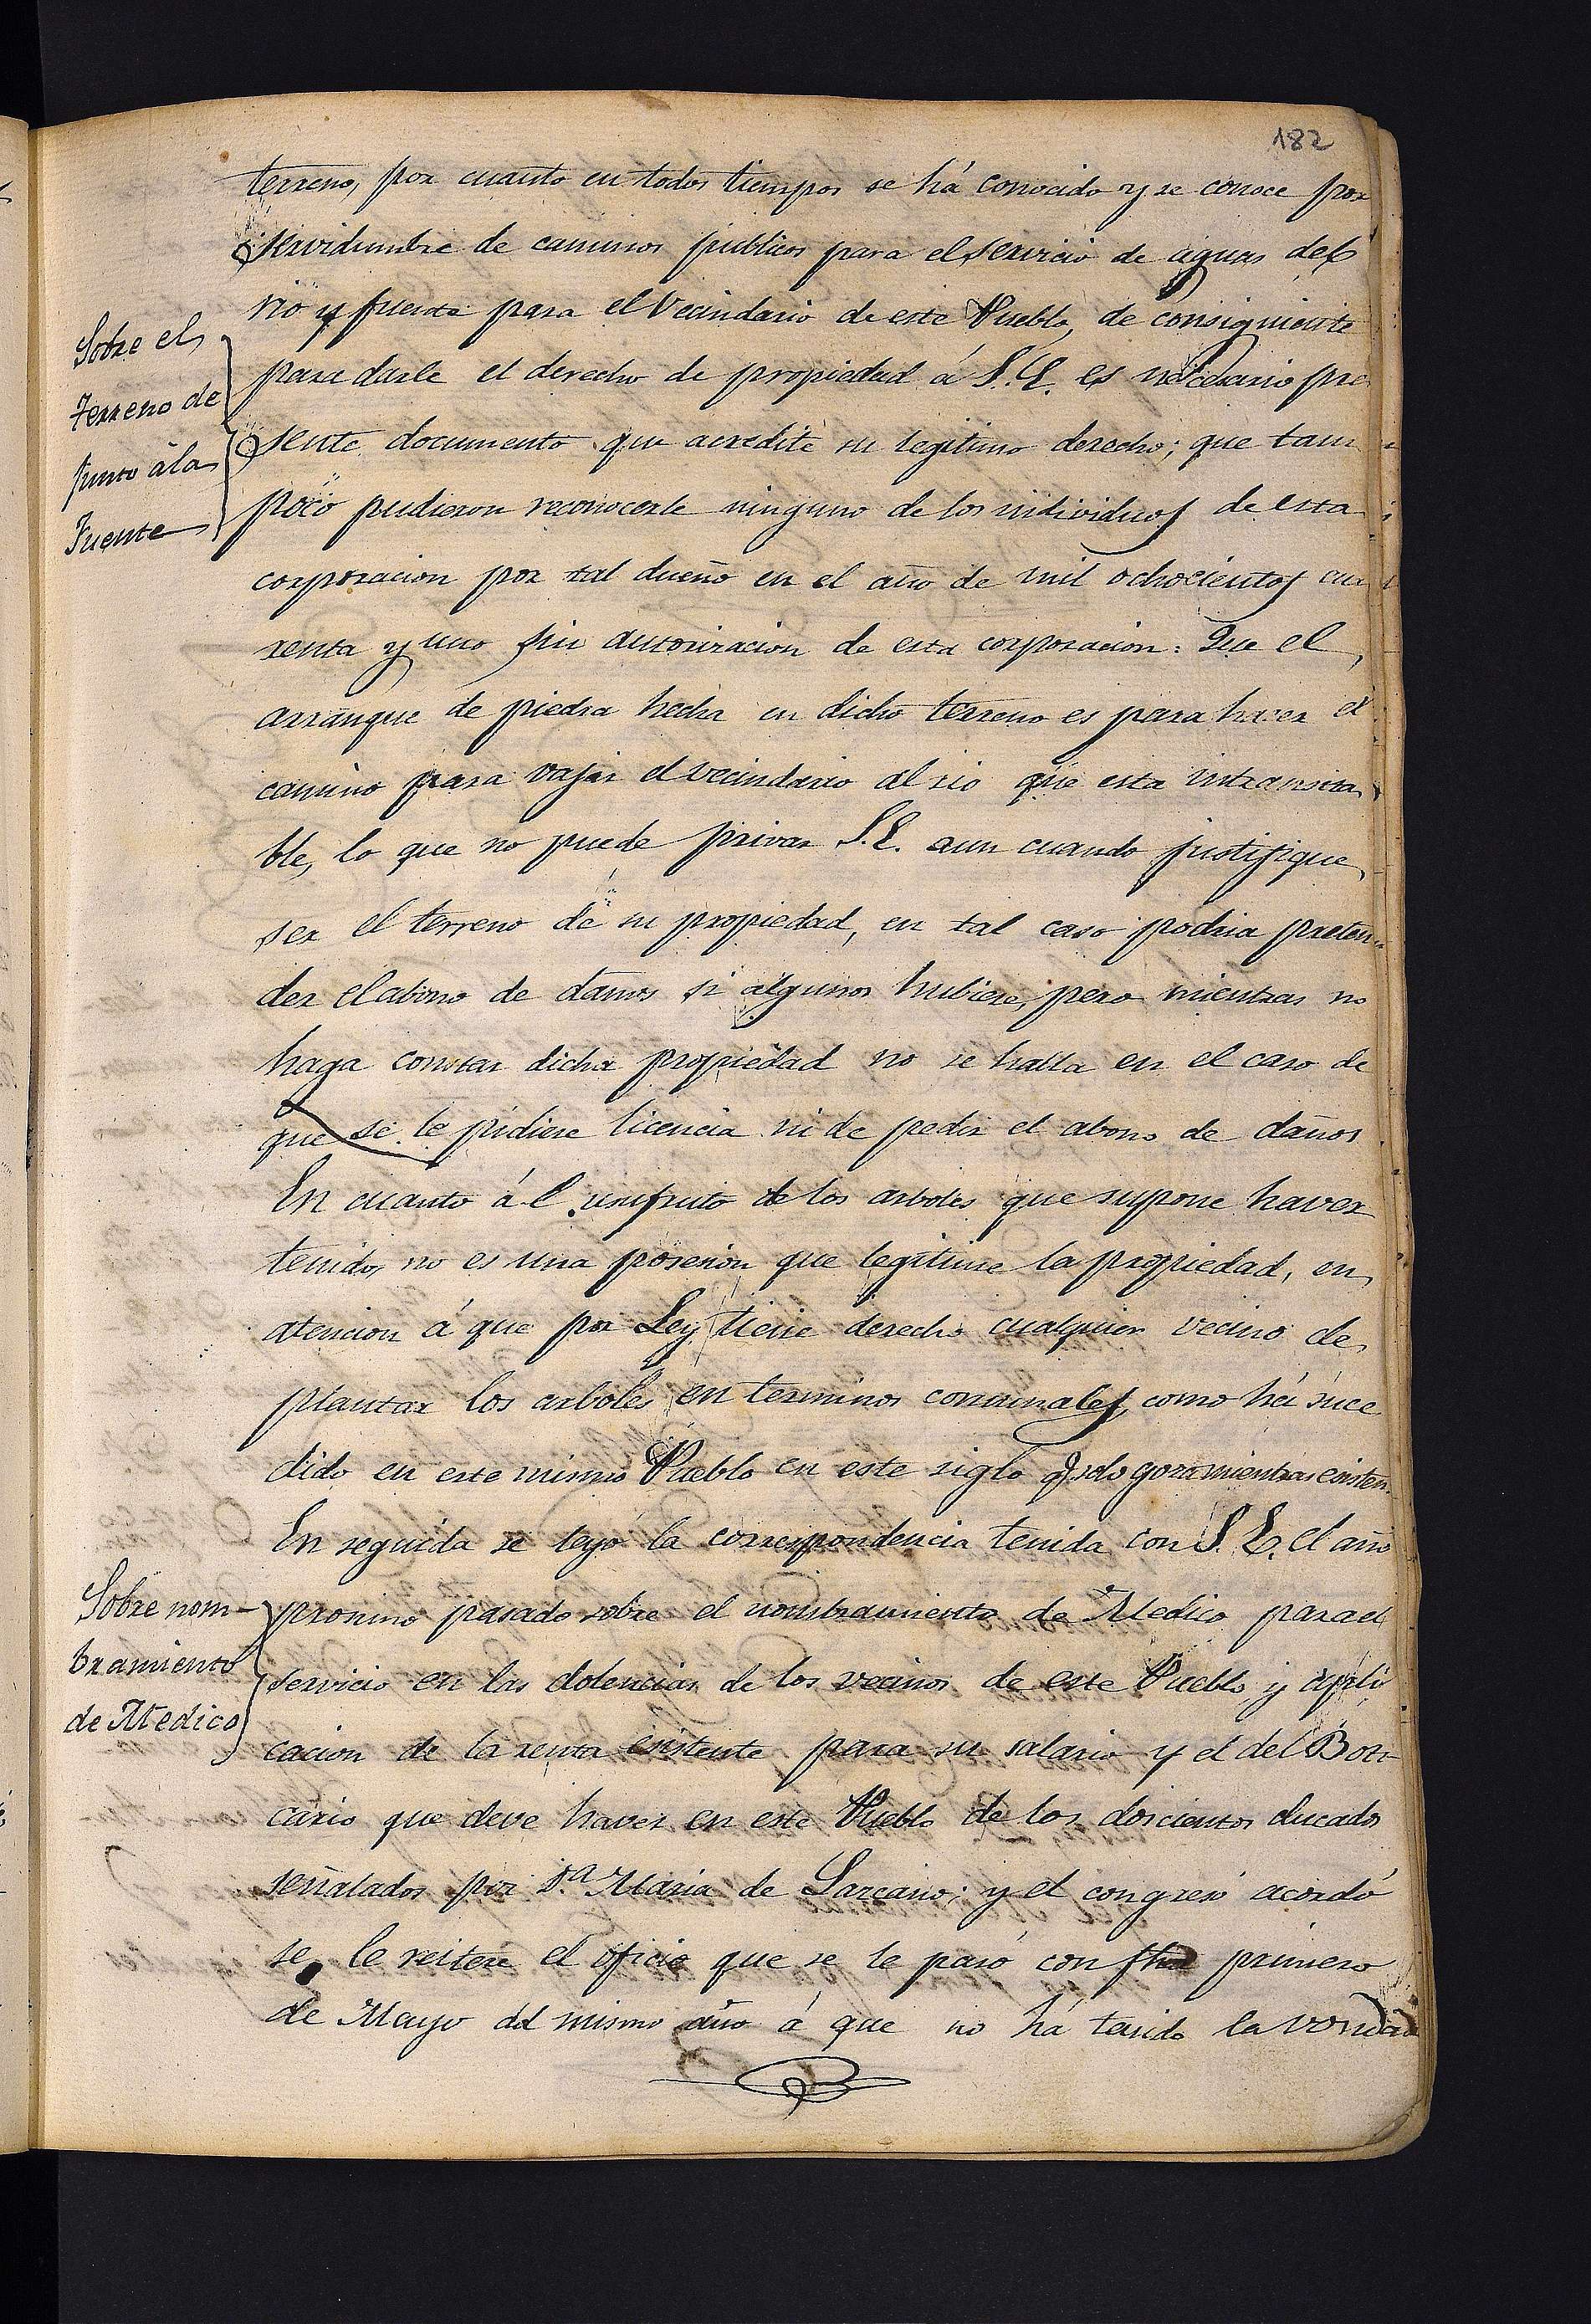 182
terreno, por cuanto en todos tiempos se há conocido y se conoce por
servidumbre de caminos publicos para el servicio de aguas del
rio y fuente para el Vecindario de este Pueblo, de consiguiente
para darle el derecho de propiedad á S.E. es necesario pre
sente documento que acredite su legitimo derecho; que tam
poco pudieron reconocerle ninguno de los individuos de esta
corporacion por tal dueño en el año de mil ochocientos cua
renta y uno sin autorizacion de esta corporacion: Que el
arranque de piedra hecha en dicho terreno es para hacer el
camino para vajar el vecindario al rio que esta intransita
ble, lo que no puede privar S.E. aun cuando justifique
ser el terreno de su propiedad, en tal caso podria preten
der el abono de daños si algunos hubiere, pero mientras no
haga constar dicha propiedad no se halla en el caso de
que se le pidiese licencia ni de pedir el abono de daños
En cuanto á el usufruto de los arboles que supone haver
tenido, no es una posesion que legitime la propiedad, en
atencion á que por Ley tiene derecho cualquier vecino de
plantar los arboles en terminos comunales, como há suce
dido en este mismo Pueblo en este siglo q solo goza mientras existen.
En seguida se leyó la correspondencia tenida con S.E. el año
proximo pasado sobre el nombramiento de Medico para el
servicio en las dolencias de los vecinos de este Pueblo y apli
cacion de la renta existente para su salario y el del Boti
cario que deve haver en este Pueblo de los doscientos ducados
señalados por D.ª Maria de Lazcano; y el congreso acordó
se le reitere el oficio que se le pasó con fha primero
de Mayo del mismo año á que no há tenido la vondad
Sobre el
terreno de
junto á la
Fuente
Sobre nom-
bramiento
de Medico